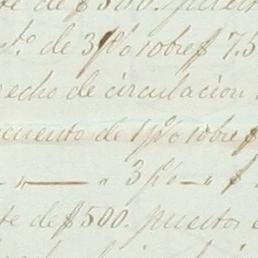 te de $500. puesto
to. de 3 p% sobre $ 7.5
echo de circulacion
cuento de 1 p% sobre $
" — " 3 p% — " $
te de $500. puestos